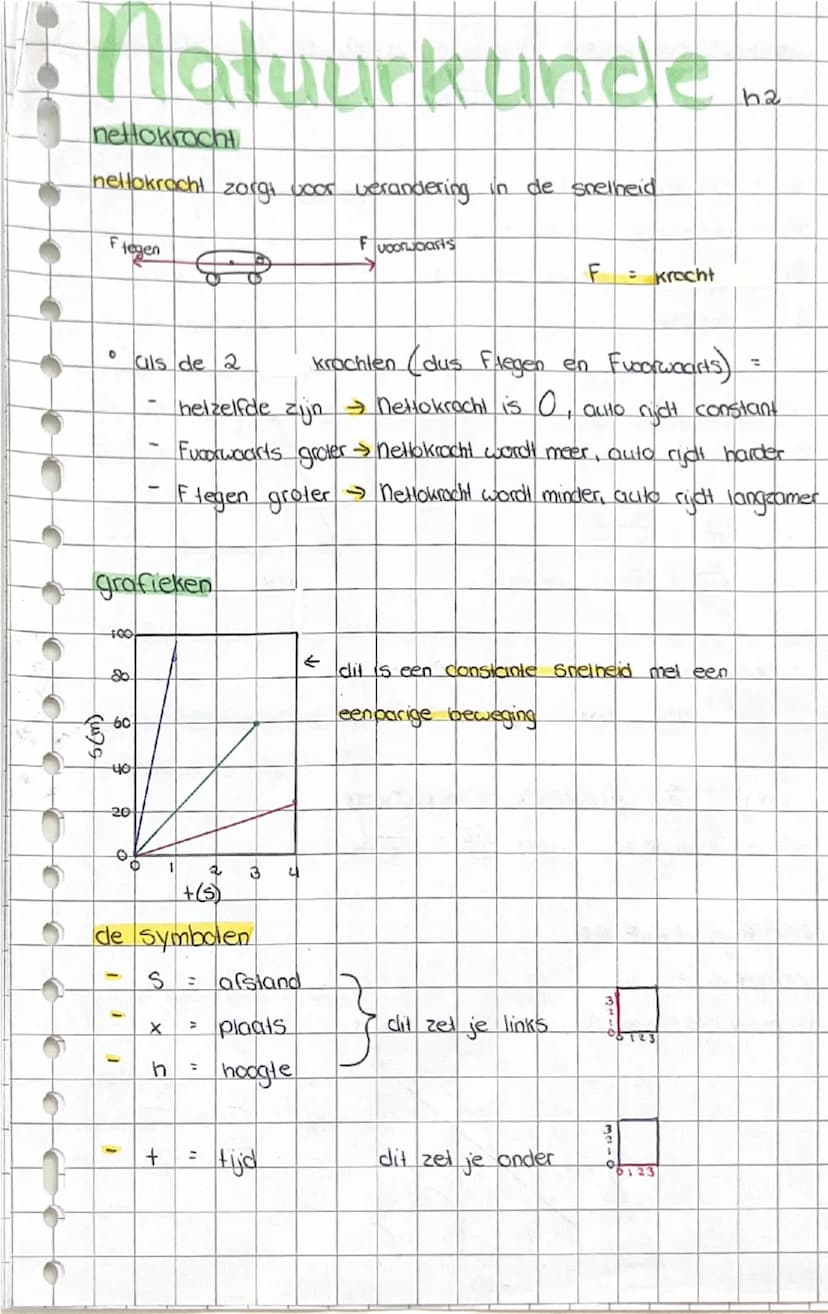 Natuurkunde h2
nettokracht
nettokracht zorgt voor verandering in de snelheid
F tegen
F voorwaarts
F = kracht
° als de 2 krachten (dus Ftegen en Fvoorwaarts) =
- hetzelfde zijn → nettokracht is 0, auto rijdt constant
- Fvoorwaarts groter → nettokracht wordt meer, auto rijdt harder
- F tegen groter → nettokracht wordt minder, auto rijdt langzamer
grafieken
100
80
60
40
20
0
s (m)
0 1 2 3 4
t(s)
← dit is een constante snelheid met een
eenparige beweging
de symbolen
- s = afstand
- x = plaats
- h = hoogte
dit zet je links
3
2
1
0
0 1 2 3
- t = tijd dit zet je onder
3
2
1
0
0 1 2 3